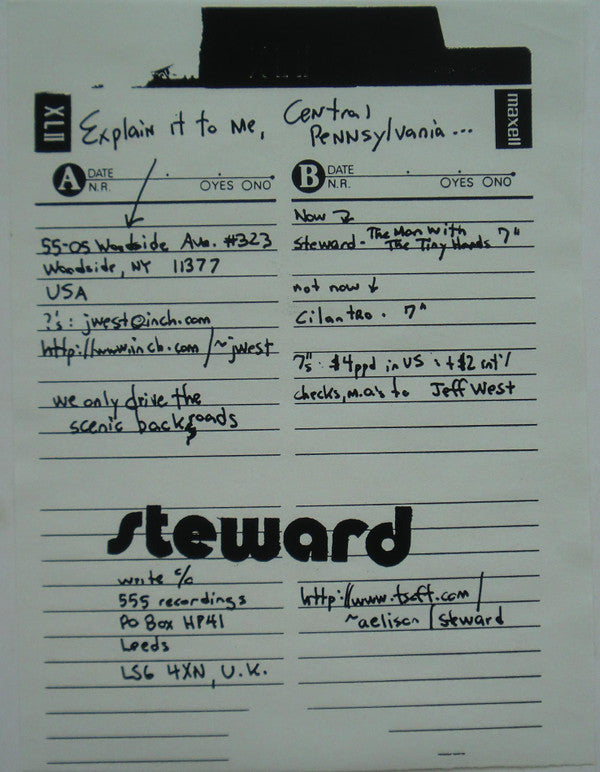 XLII
maxell
Explain it to me, Central Pennsylvania...
A DATE
N.R. OYES ONO
B DATE
N.R. OYES ONO
55-05 Woodside Ave. #323
Woodside, NY 11377
USA
?'s: jwest@inch.com
http://www.inch.com/~jwest
we only drive the
scenic backroads
Now
Steward - The Man With
The Tiny Hands 7"
not now
Cilantro - 7"
7"s: $4ppd in US : +$2 int'l
checks, m.o.'s to Jeff West
steward
write c/o
555 recordings
PO Box HP41
Leeds
LS6 4XN, U.K.
http://www.tsoft.com/
~aelison/steward